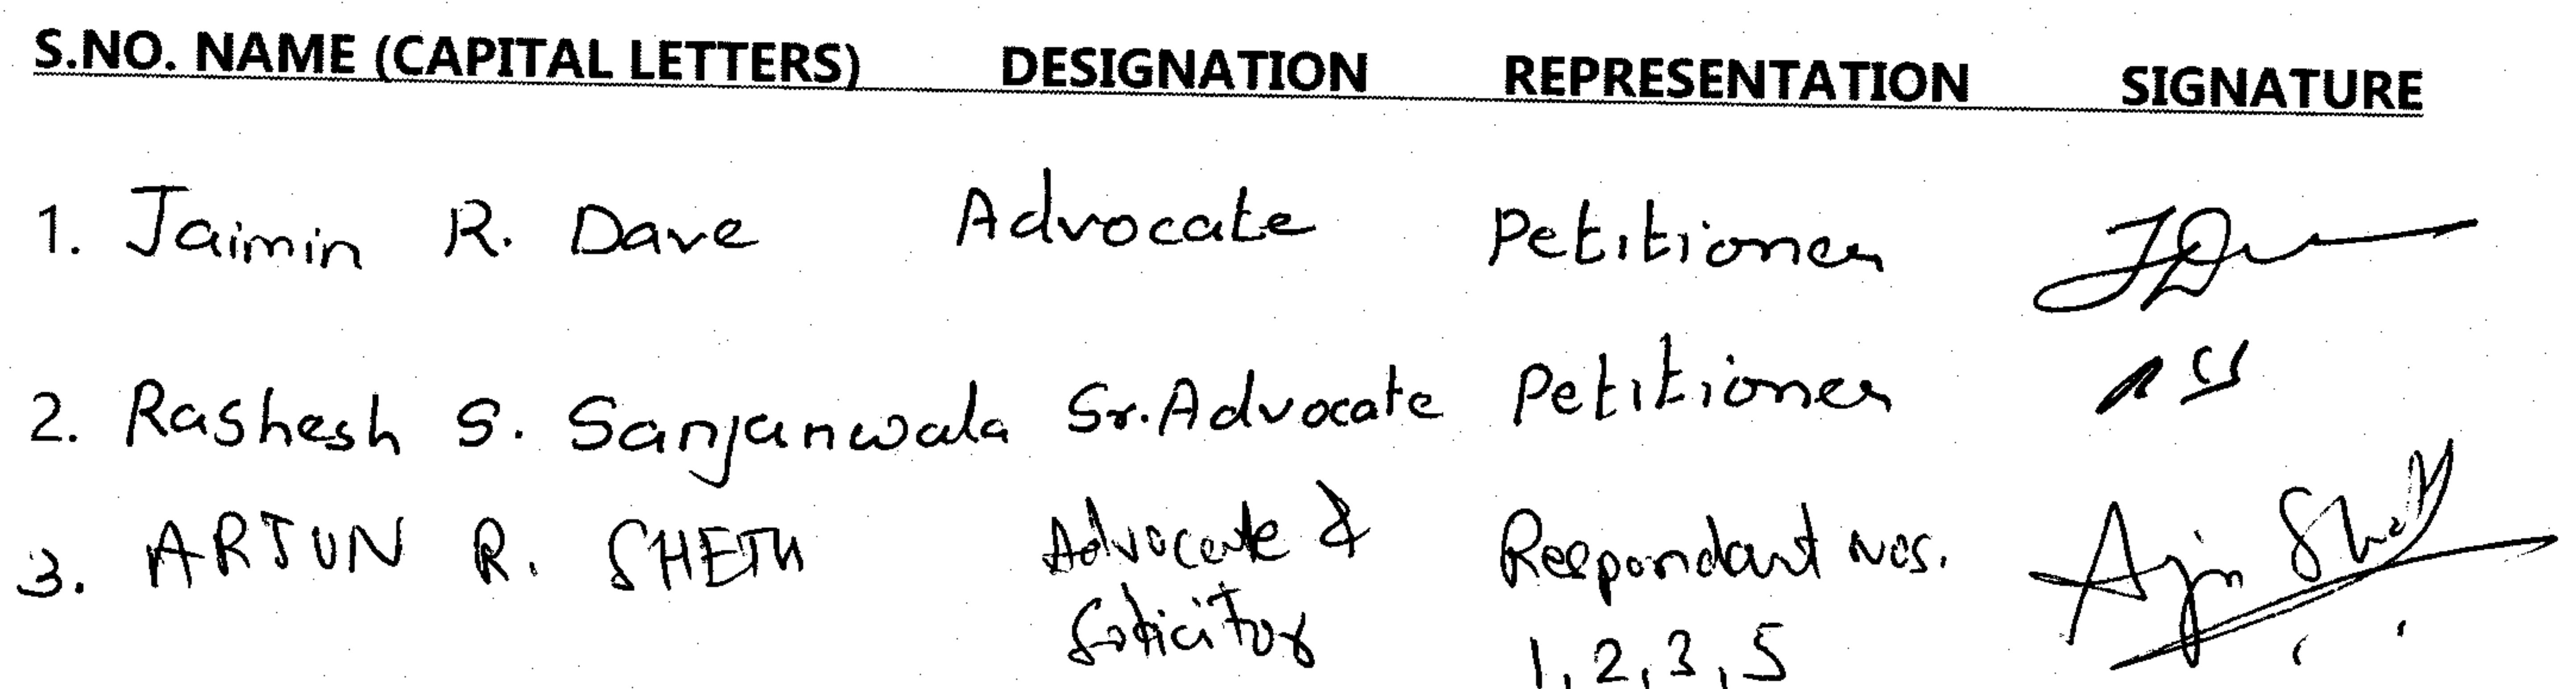 S.NO. NAME (CAPITAL LETTERS) DESIGNATION REPRESENTATION SIGNATURE
1. Jaimin R. Dave Advocate Petitioner
2. Rashesh S. Sanjanwala Sr. Advocate Petitioner
3. ARJUN R. SHETH Advocate & Respondant Nos.
Solicitor 1, 2, 3, 5